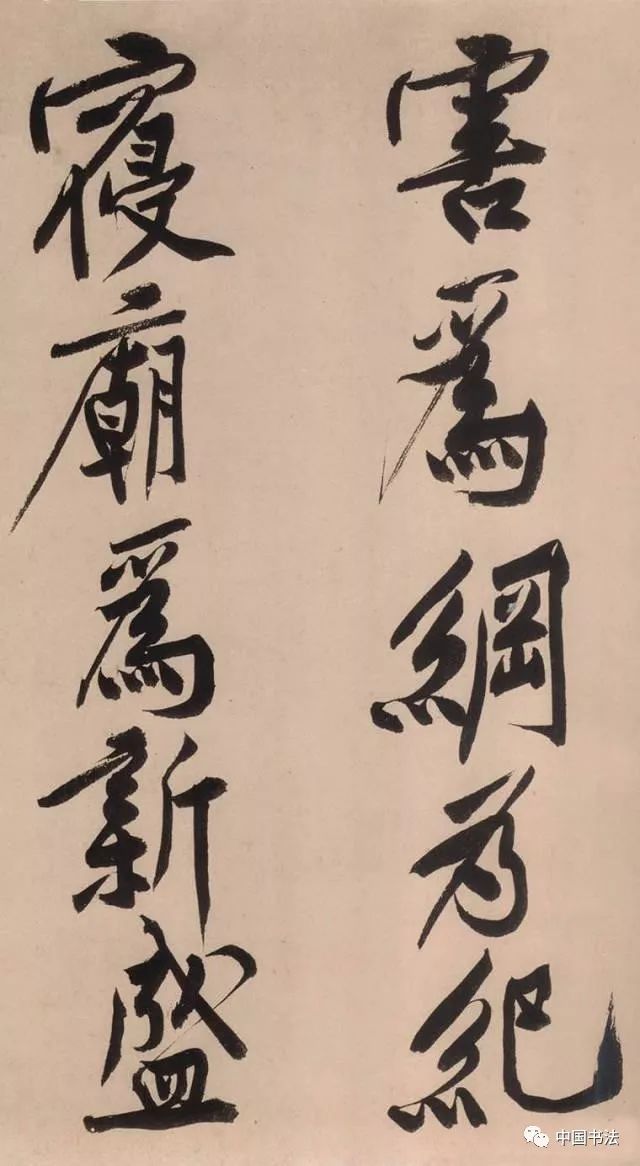 害爲綱為紀
寢廟爲新盛
中国书法